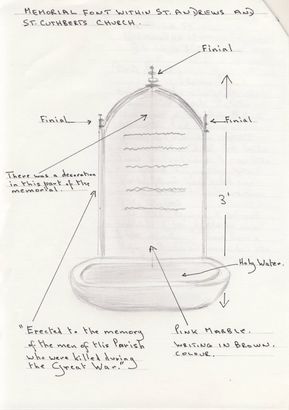 MEMORIAL FONT WITHIN ST. ANDREWS AND
ST. CUTHBERTS CHURCH.
Finial
Finial
Finial
There was a decoration
in this part of the
memorial.
3'
Holy Water.
"Erected to the memory
of the men of this Parish
who were killed during
the Great War."
PINK MARBLE.
WRITING IN BROWN.
COLOUR.